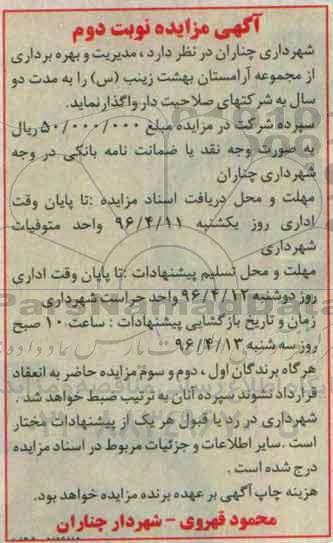 آگهی مزایده نوبت دوم
شهرداری چناران در نظر دارد ، مدیریت و بهره برداری
از مجموعه آرامستان بهشت زینب (س) را به مدت دو
سال به شرکتهای صلاحیت دار واگذار نماید.
سپرده شرکت در مزایده مبلغ ۵۰/۰۰۰/۰۰۰ ریال
به صورت وجه نقد یا ضمانت نامه بانکی در وجه
شهرداری چناران
مهلت و محل دریافت اسناد مزایده :تا پایان وقت
اداری روز یکشنبه ۹۶/۴/۱۱ واحد متوفیات
شهرداری
مهلت و محل تسلیم پیشنهادات :تا پایان وقت اداری
روز دوشنبه ۹۶/۴/۱۲ واحد حراست شهرداری
زمان و تاریخ بازگشایی پیشنهادات : ساعت ۱۰ صبح
روز سه شنبه ۹۶/۴/۱۳
هرگاه برندگان اول ، دوم و سوم مزایده حاضر به انعقاد
قرارداد نشوند سپرده آنان به ترتیب ضبط خواهد شد .
شهرداری در رد یا قبول هر یک از پیشنهادات مختار
است .سایر اطلاعات و جزئیات مربوط در اسناد مزایده
درج شده است .
هزینه چاپ آگهی بر عهده برنده مزایده خواهد بود.
محمود قهروی - شهردار چناران